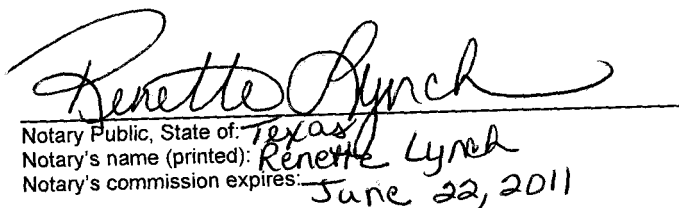 Renette Lynch
Notary Public, State of: Texas
Notary's name (printed): Renette Lynch
Notary's commission expires: June 22, 2011